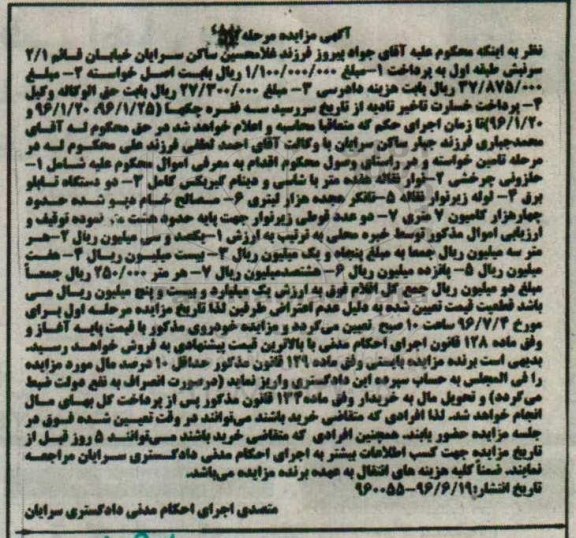 آگهی مزایده مرحله
نظر به اینکه محکوم علیه آقای جواد پیروز فرزند غلامحسین ساکن سرایان خیابان قائم ۲/۱
سرنبش طبقه اول به پرداخت ۱-مبلغ ۱/۱۰۰/۰۰۰/۰۰۰ ریال بابت اصل خواسته ۲- مبلغ
۳۷/۸۷۵/۰۰۰ ریال بابت هزینه دادرسی ۳- مبلغ ۲۷/۳۰۰/۰۰۰ ریال بابت حق الوکاله وکیل
۴- پرداخت خسارت تاخیر تادیه از تاریخ سررسید سه فقره چکها (۹۶/۱/۲۵، ۹۶/۱/۲۰ و
۹۶/۱/۲۰)تا زمان اجرای حکم که متعاقبا محاسبه و اعلام خواهد شد در حق محکوم له آقای
محمدجباری فرزند جبار ساکن سرایان با وکالت آقای احمد لطفی فرزند علی محکوم له در
مرحله تامین خواسته و در راستای وصول محکوم اقدام به معرفی اموال محکوم علیه شامل ۱-
حلزونی چرخشی ۲-نوار نقاله هفده متر با شاسی و دینام گیربکس کامل ۳- دو دستگاه تابلو
برق ۴- لوله زیرنوار نقاله ۵-تانکر هجده هزار لیتری ۶- مصالح خام دپو شده حدود
چهارهزار کامیون ۷ متری ۷- دو عدد قوطی زیرنوار جهت پایه حدود هشت متر نموده توقیف و
ارزیابی اموال مذکور توسط خبره محلی به ترتیب به ارزش ۱-یکصد و سی میلیون ریال ۲-هر
متر سه میلیون ریال جمعا به مبلغ پنجاه و یک میلیون ریال ۳- بیست میلیون ریال ۴- هفت
میلیون ریال ۵- پانزده میلیون ریال ۶- هشتصدمیلیون ریال ۷- هر متر ۲۵۰/۰۰۰ ریال جمعاً
مبلغ دو میلیون ریال جمع کل اقلام فوق به ارزش یک میلیارد و بیست و پنج میلیون ریال می
باشد قطعیت قیمت تعیین شده به دلیل عدم اعتراض طرفین لذا تاریخ مزایده مرحله اول برای
مورخ ۹۶/۷/۴ ساعت ۱۰ صبح تعیین می‌گردد و مزایده خودروی مذکور با قیمت پایه آغاز و
وفق ماده ۱۲۸ قانون اجرای احکام مدنی با بالاترین قیمت پیشنهادی به فروش خواهد رسید.
بدیهی است برنده مزایده بایستی وفق ماده ۱۲۹ قانون مذکور حداقل ۱۰ درصد مال مورد مزایده
را فی المجلس به حساب سپرده این دادگستری واریز نماید (درصورت انصراف به نفع دولت ضبط
می‌گردد) و تحویل مال به خریدار وفق ماده۱۳۴ قانون مذکور پس از پرداخت کل بهای مال
انجام خواهد شد. لذا افرادی که متقاضی خرید باشند می‌توانند در وقت تعیین شده فوق در
جلسه مزایده حضور یابند. همچنین افرادی که متقاضی خرید باشند می‌توانند ۵ روز قبل از
تاریخ مزایده جهت کسب اطلاعات بیشتر به اجرای احکام مدنی دادگستری سرایان مراجعه
نمایند. ضمناً کلیه هزینه های انتقال به عهده برنده مزایده می‌باشد.
تاریخ انتشار:۹۶/۶/۱۹-۹۶۰۰۵۵
متصدی اجرای احکام مدنی دادگستری سرایان